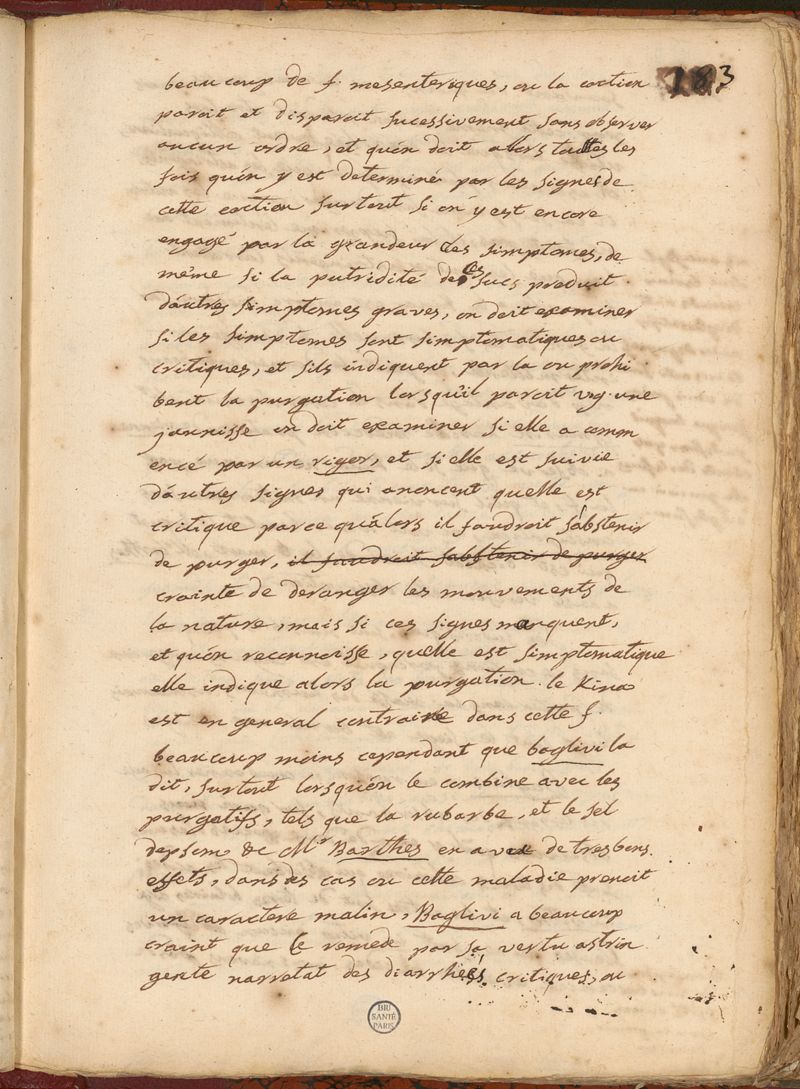 183
beaucoup de f. mesenteriques, ou la coction
paroit et disparoit sucessivement sans observer
aucun ordre, et qu'on doit alors toutes les
fois qu'on y est determiné par les signes de
cette coction surtout si on y est encore
engagé par la grandeur des simptomes, de
même si la putridité de ces sucs produit
d'autres simptomes graves, on doit examiner
si les simptomes sont simptomatiques ou
critiques, et sils indiquent par la ou prohi
bent la purgation lorsqu'il paroit v.g. une
jaunisse on doit examiner si elle a comm
encé par un rigor, et si elle est suivie
d'autres signes qui anoncent quelle est
critique parce qu'alors il faudroit s'abstenir
de purger, il faudroit sabstenir de purger
crainte de deranger les mouvements de
la nature, mais si ces signes manquent,
et qu'on reconnoisse, quelle est simptomatique
elle indique alors la purgation. le Kina
est en general contraire dans cette f.
beaucoup moins cependant que baglivi la
dit, surtout lorsqu'on le combine avec les
purgatifs, tels que la rubarbe, et le sel
depsom &c Mr Barthes en a vu de tres bons
effets, dans des cas ou cette maladie prenoit
un caractere malin, Baglivi a beaucoup
craint que le remede par sa vertu astrin
gente narretat des diarrheés critiques, ou
BIU
SANTÉ
PARIS